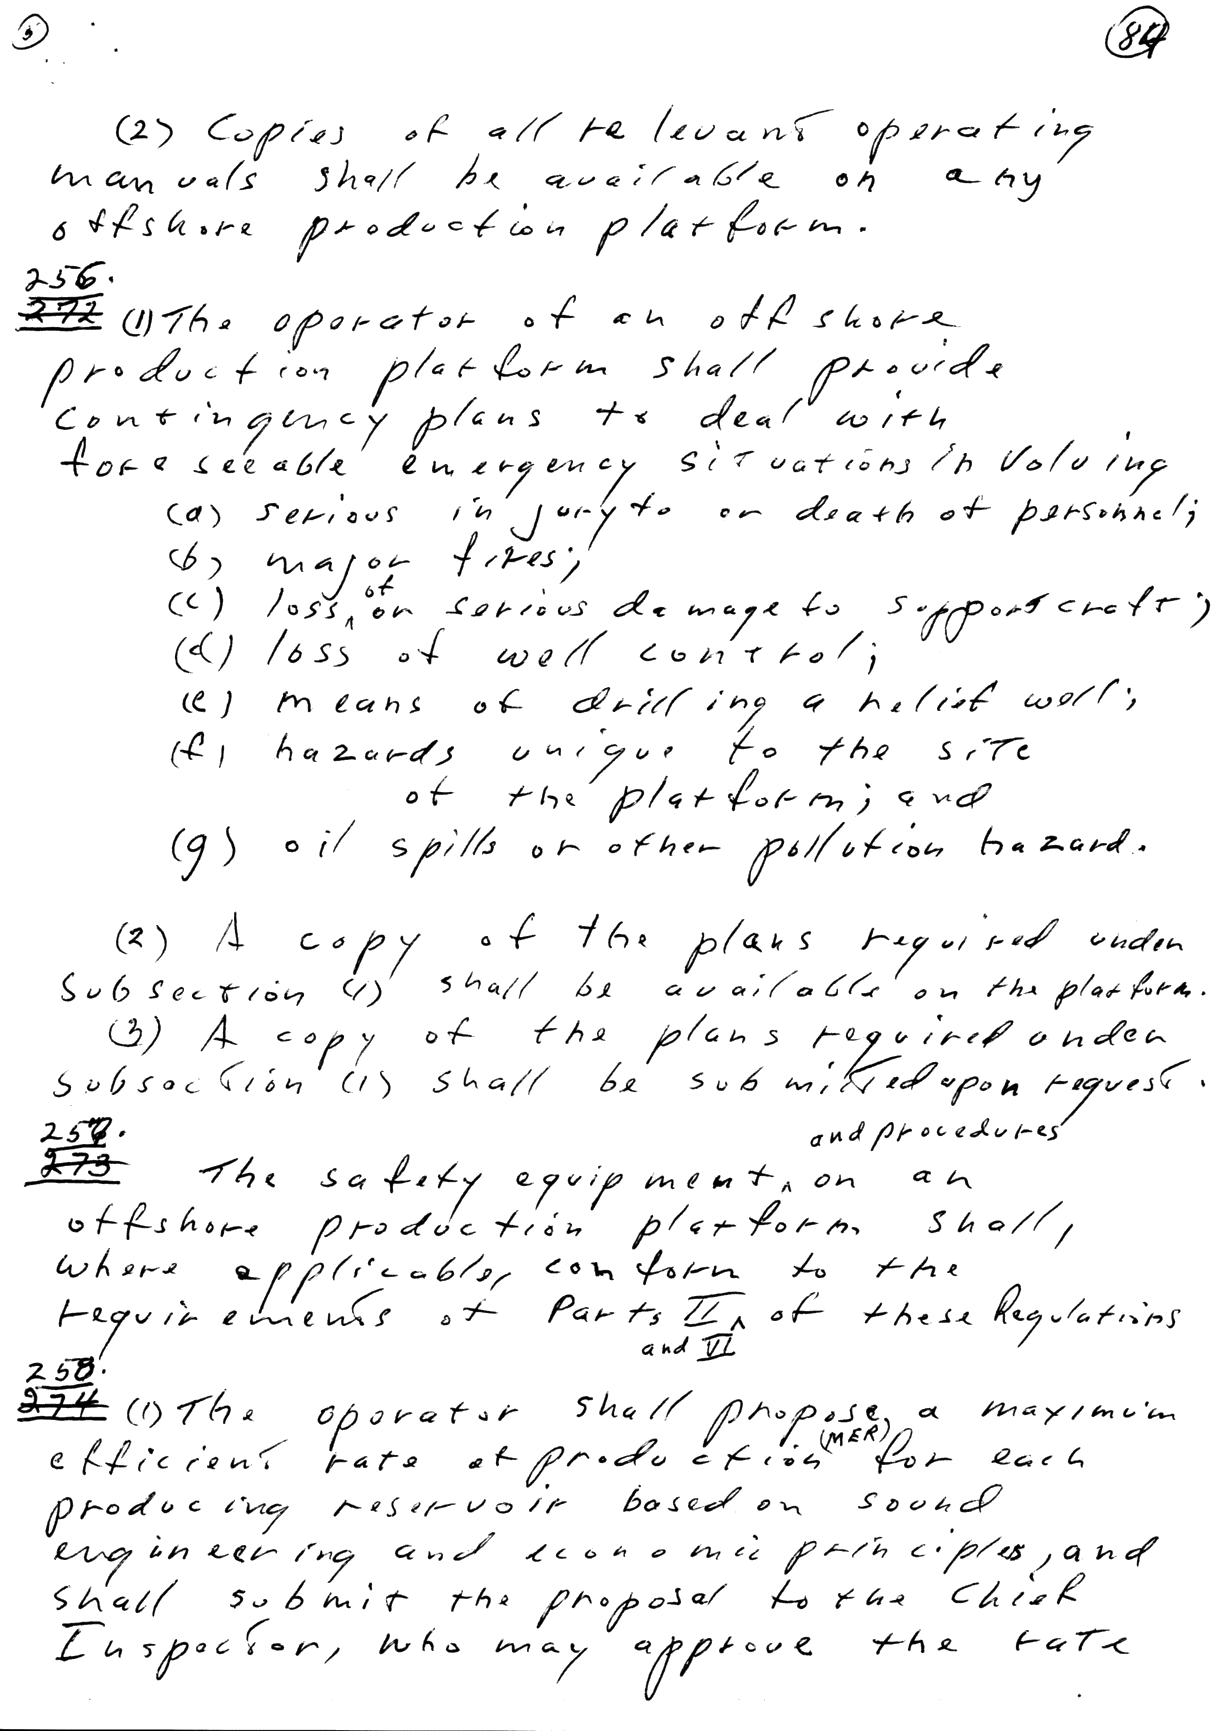 5
84
(2) Copies of all relevant operating
manuals shall be available on any
offshore production platform.
256.
272 (1) The operator of an offshore
production platform shall provide
contingency plans to deal with
foreseeable emergency situations involving
(a) serious injury to or death of personnel;
(b) major fires;
of
(c) loss, or serious damage to support craft;
(d) loss of well control;
(e) means of drilling a relief well;
(f) hazards unique to the site
of the platform; and
(g) oil spills or other pollution hazard.
(2) A copy of the plans required under
subsection (1) shall be available on the platform.
(3) A copy of the plans required under
subsection (1) shall be submitted upon request.
257.
and procedures
273 The safety equipment on an
offshore production platform shall,
where applicable, conform to the
requirements of Parts II of these Regulations
and VI
258.
274 (1) The operator shall propose a maximum
(MER)
efficient rate of production for each
producing reservoir based on sound
engineering and economic principles, and
shall submit the proposal to the Chief
Inspector, who may approve the rate